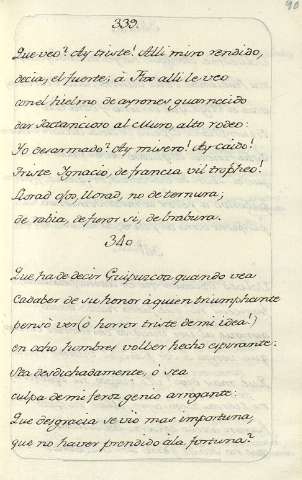 90
339.
Que veo? Ay triste! Alli miro rendido,
decia, el fuerte; à Fox alli le veo
con el hielmo de ayrones guarnecido
dar Jactancioso al Muro, alto rodeo:
Yo desarmado? Ay misero! Ay Caido!
Triste Ignacio, de francia vil tropheo!
Llorad ojos, llorad, no de ternura;
de rabia, de furor si, de brabura.
340
Que ha de decir Guipuzcoa quando vea
Cadaber de su honor à quien triumphante
pensò ver (ò horror triste de mi idea!)
en ocho hombres volber hecho espirante:
Sea desdichadamente, ò sea
culpa de mi feroz genio arrogante:
Que desgracia se viò mas importuna,
que no haver prendido à la fortuna?